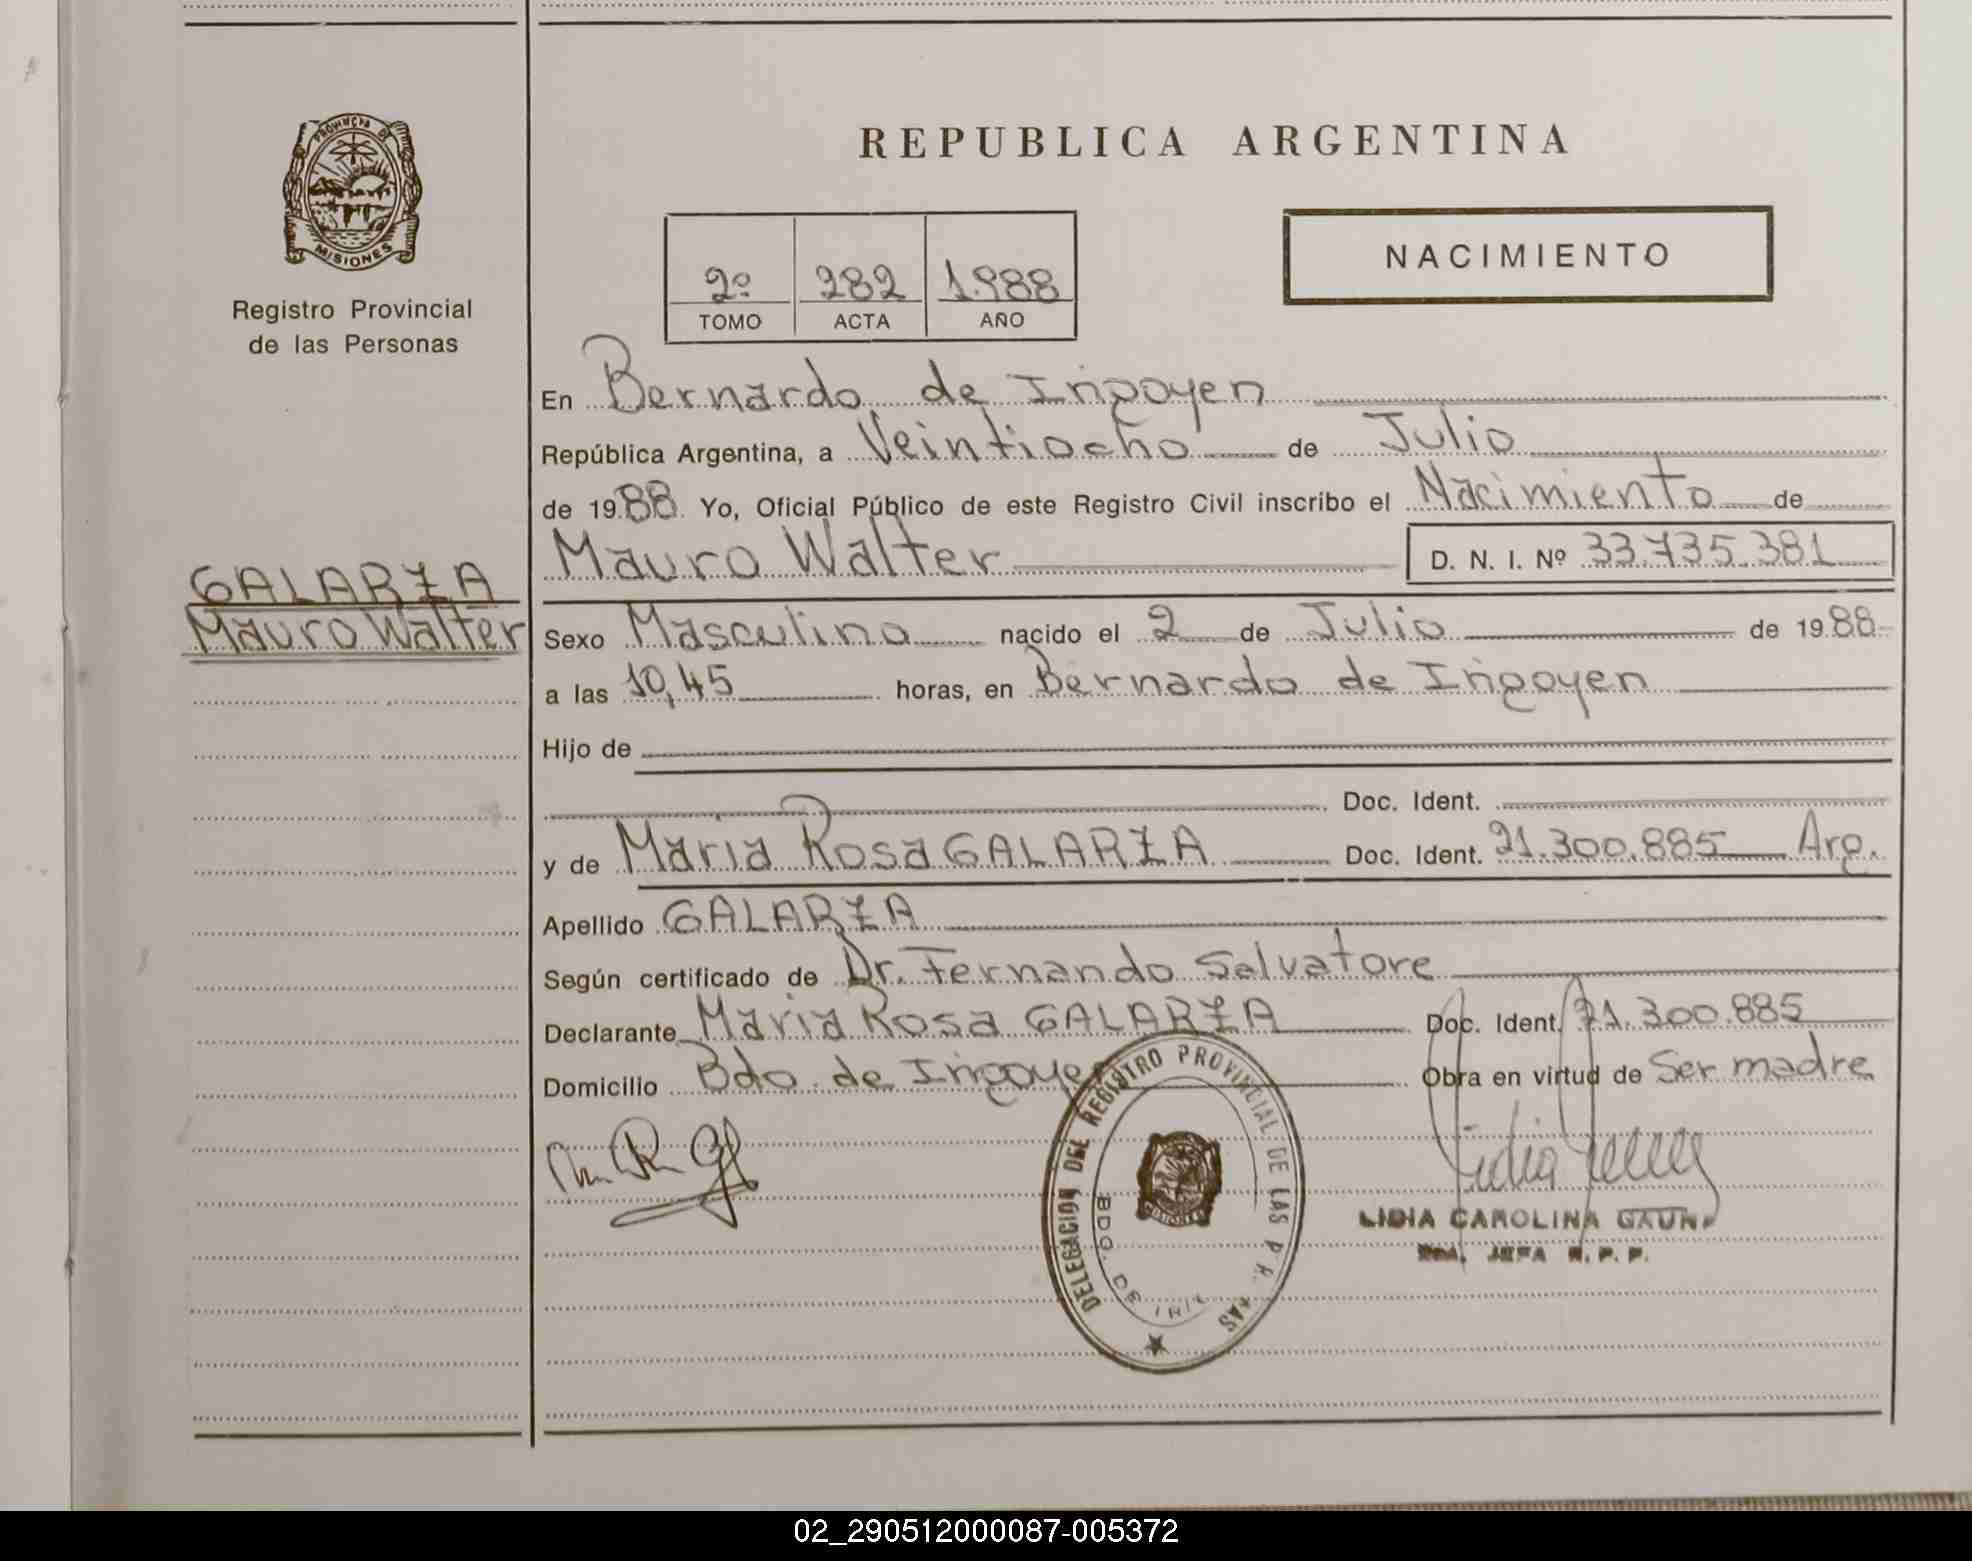 PROVINCIA DE
MISIONES
Registro Provincial
de las Personas
GALARZA
Mauro Walter
REPUBLICA ARGENTINA
2º 282 1.988
TOMO ACTA AÑO
NACIMIENTO
En Bernardo de Irigoyen
República Argentina, a Veintiocho de Julio
de 1988 Yo, Oficial Público de este Registro Civil inscribo el Nacimiento de
Mauro Walter D. N. I. Nº 33.735.381
Sexo Masculino nacido el 2 de Julio de 1988
a las 10,45 horas, en Bernardo de Irigoyen
Hijo de
Doc. Ident.
y de Maria Rosa GALARZA Doc. Ident. 21.300.885 Arg.
Apellido GALARZA
Según certificado de Dr. Fernando Salvatore
Declarante Maria Rosa GALARZA Doc. Ident. 21.300.885
Domicilio Bdo. de Irigoyen Obra en virtud de Ser madre
DELEGACION DEL REGISTRO PROVINCIAL DE LAS
BDO. DE IRI
LIDIA CAROLINA
JEFA R. P. P.
02_290512000087-005372